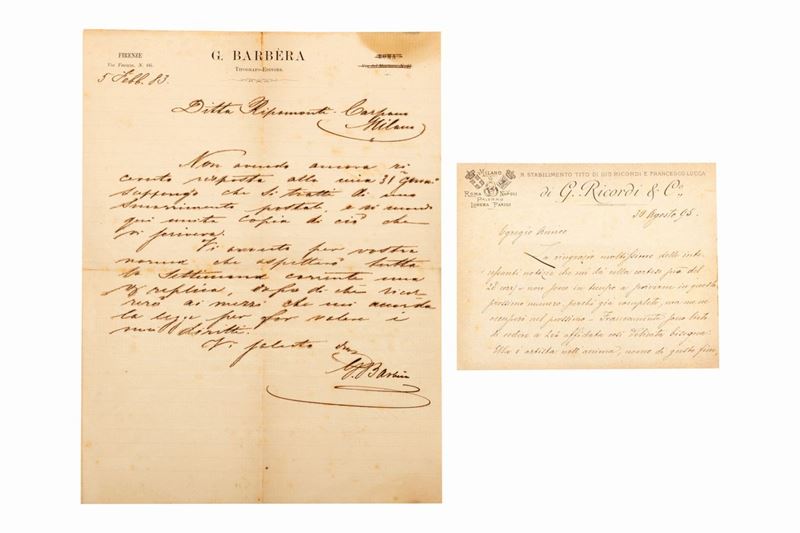 FIRENZE
Via Faenza, N. 66.
G. BARBÈRA
TIPOGRAFO-EDITORE.
ROMA
5 Febb. 83.
Ditta Ripamonti Carpano
Milano
Non avendo ancora ri
cevuto risposta alla mia 31 genn.
suppongo che si tratti di uno
smarrimento postale, e vi mando
qui unita copia di ciò che
vi scriveva.
Vi avverto per vostra
norma che aspetterò tutta
la settimana corrente una
replica, dopo di che ricor
rerò ai mezzi che mi accorda
la legge per far valere i
miei diritti.
Vi saluto
G. Barbèra
MILANO
ROMA NAPOLI
PALERMO
LONDRA PARIGI
R. STABILIMENTO TITO DI GIO. RICORDI E FRANCESCO LUCCA
di G. Ricordi & C.
30 Agosto 95.
Egregio Amico
La ringrazio moltissimo delle inte-
ressanti notizie che mi dà colla cortese sua del
28 corr. non sono in tempo a
prossimo numero, perchè già completo, ma me ne
occuperò nel prossimo. Francamente sono lieto
di vedere a Lei affidata così delicata bisogna:
Ella è artista nell'anima, uomo di gusto fine,